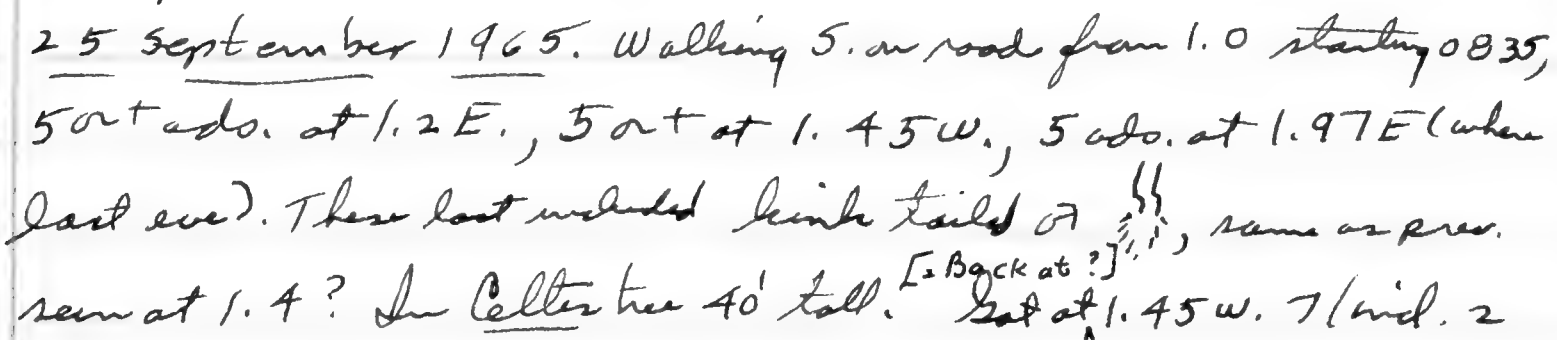 25 September 1965. Walking S. on road from 1.0 starting 0835,
5 or + ads. at 1.2 E., 5 or + at 1.45 W., 5 ads. at 1.97 E (where
last eve). These last included kink tailed ♂, same as prev.
[= Back at ?]
seen at 1.4? In Celtis tree 40' tall. at 1.45 W. 7 (incl. 2